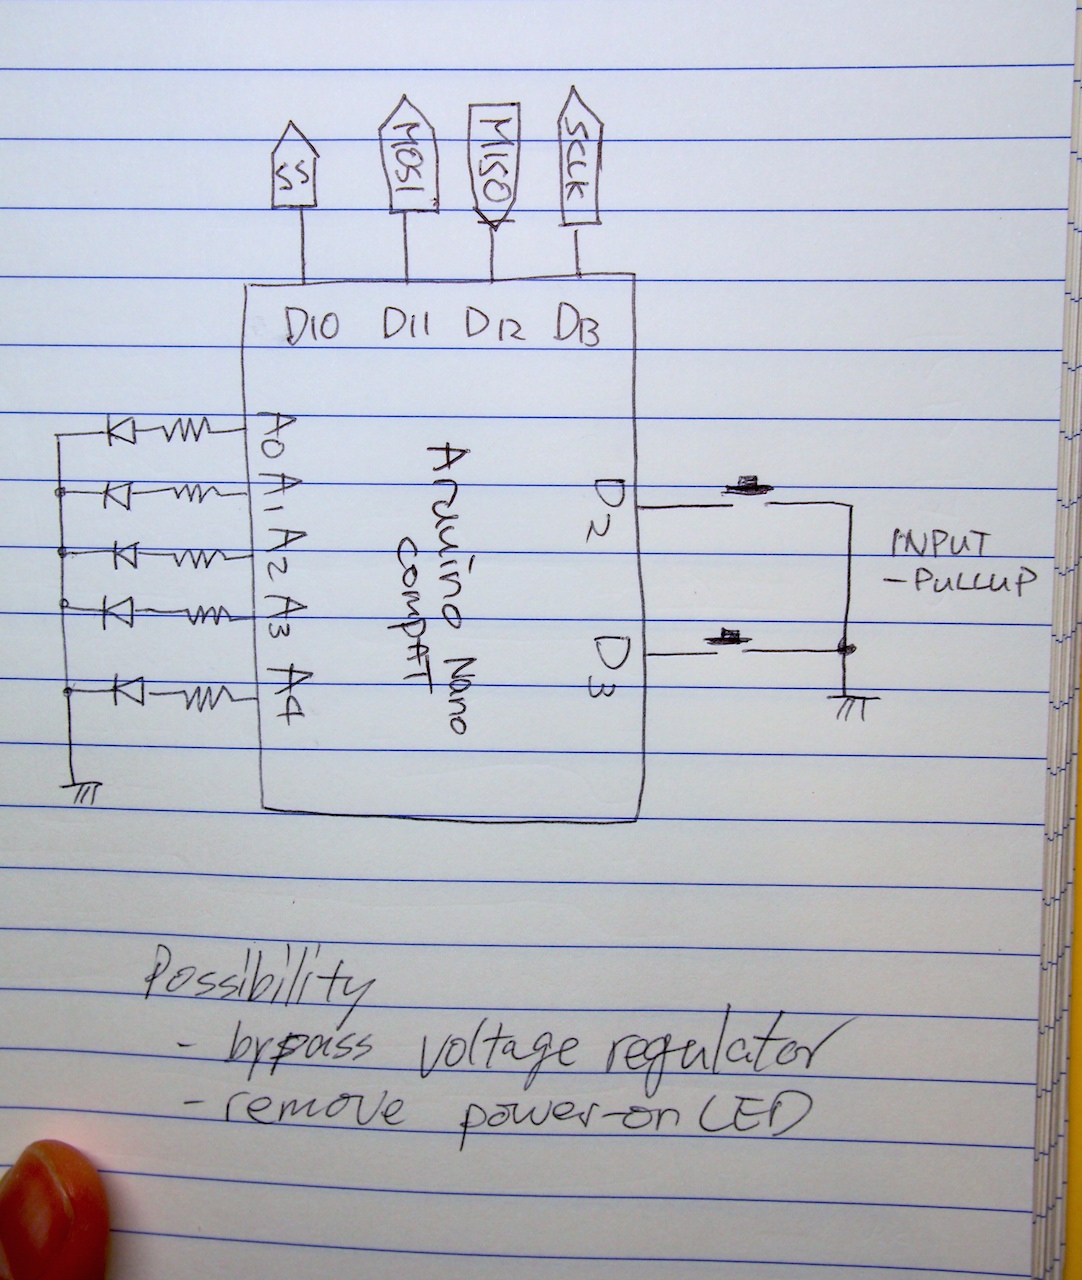 SS MOSI MISO SCLK
D10 D11 D12 D13
A0
A1
A2
A3
A4
Arduino Nano
COMPAT
D2
D3
INPUT
-PULLUP
Possibility
- bypass voltage regulator
- remove power-on LED